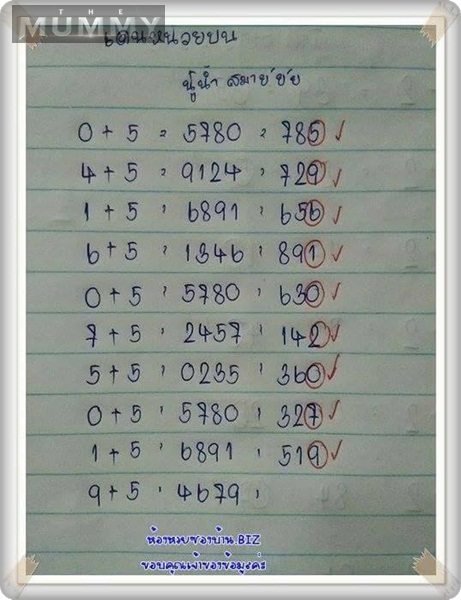 THE
MUMMY
เด่นหน่วยบน
ปู่นำ สมาย์ชัย
0 + 5 = 5780 = 785 ✓
4 + 5 = 9124 = 729 ✓
1 + 5 = 6891 = 656 ✓
6 + 5 = 1346 = 891 ✓
0 + 5 = 5780 = 630 ✓
7 + 5 = 2457 = 142 ✓
5 + 5 = 0235 = 360 ✓
0 + 5 = 5780 = 327 ✓
1 + 5 = 6891 = 519 ✓
9 + 5 = 4679 =
ห้องหวยซองบ้าน.BIZ
ขอบคุณเจ้าของข้อมูลค่ะ